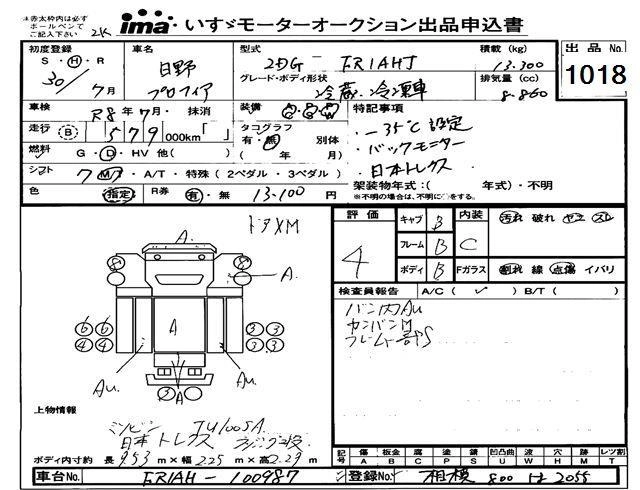 ※赤太枠内は必ず
ボールペンで
ご記入下さい
2K
ima いすゞモーターオークション出品申込書
初度登録 S・H・R 30/7月
車名 日野 プロフィア
型式 2DG- FR1AHJ
グレード・ボディ形状 冷蔵冷凍車
積載 (kg) 13.300
排気量 (cc) 8.860
出品No. 1018
車検 R8年7月・抹消
装備
特記事項
走行 B 579 000km「 」
タコグラフ 有・無 別体
( 年 月)
-35℃設定
バックモニター
日本トレクス
燃料 G・D・HV 他( )
シフト 7 M・A/T・特殊(2ペダル・3ペダル)
架装物年式:( 年式)・不明
※不明の場合は、不明に○をする。
色 指定 R券 有・無 13.100 円
ドアXM
評価 4
キャブ B 内装 汚れ 破れ ヤニ スレ
フレーム B C
ボディ B Fガラス 割れ 線 点傷 イバリ
検査員報告 A/C( ✓ ) B/T( )
バン内AU
カンバンM
フレーム部S
A
A.
8 8
A
6 6 3 3
4 4 3 3
Au. Au.
A
上物情報
ミツビシ TU100SA
日本トレクス
ボディ内寸約 長 9.53 m×幅 2.25 m×高 2.29 m
記号 傷A 板金B 腐C 塗P 錆S 凹凸曲U 波W 穴H 跡M レツ割T
車台No. FR1AH-100987
登録No. 相模 800 は 2055